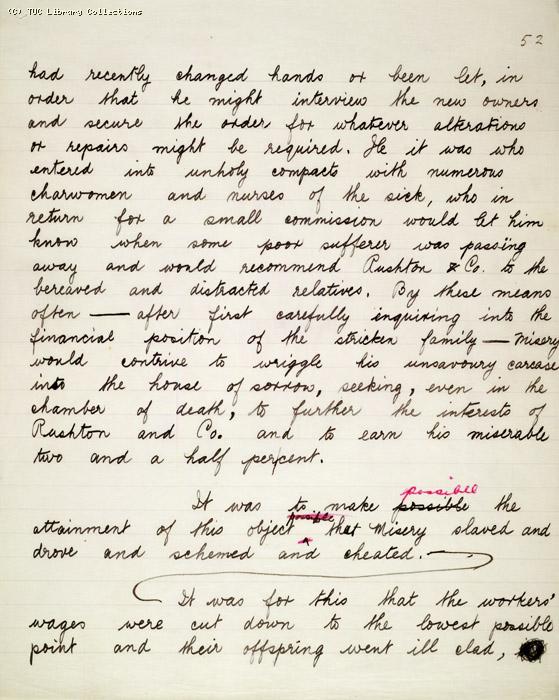 (C) TUC Library Collections
52
had recently changed hands or been let, in
order that he might interview the new owners
and secure the order for whatever alterations
or repairs might be required. He it was who
entered into unholy compacts with numerous
charwomen and nurses of the sick, who in
return for a small commission would let him
know when some poor sufferer was passing
away and would recommend Rushton & Co. to the
bereaved and distracted relatives. By these means
often — after first carefully inquiring into the
financial position of the stricken family — Misery
would contrive to wriggle his unsavoury carcase
into the house of sorrow, seeking, even in the
chamber of death, to further the interests of
Rushton and Co. and to earn his miserable
two and a half per cent.
possible
It was to make possible the
possible
attainment of this object that Misery slaved and
drove and schemed and cheated. —
It was for this that the workers'
wages were cut down to the lowest possible
point and their offspring went ill clad,